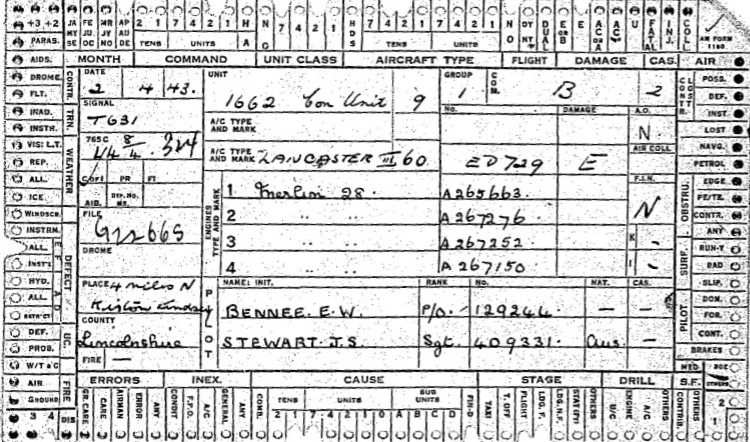 +3 +2 JA MY SE FE JU OC MR JY NO AP AU DE 2 1 7 4 2 1 H A N G 7 4 2 1 H D S 7 4 2 1 7 4 2 1 NO DY NT DUAL E OR B E OR B AC OR A AC U FATAL INJ. COLL AM FORM 1180.
PARAS. TENS UNITS TENS UNITS
AIDS. MONTH COMMAND UNIT CLASS AIRCRAFT TYPE FLIGHT DAMAGE CAS. AIR
DROME. CONTR. DATE UNIT GROUP COM. CONSTR. POSS.
FLT. 2 4 43. 1662 Con Unit 9 1 B 2 DEF.
INAD. TRN. SIGNAL No. DAMAGE A.O. INST.
INSTR. T631 A/C TYPE AND MARK N. LOST
VIS: L.T. WEATHER 765C 8/4 324 AIR COLL NAVG.
REP. 14 A/C TYPE AND MARK LANCASTER III 60 ED729 E PETROL
ALL. COPY PR FT F.I.N. OBSTRU. EDGE
ICE. AIB. REP. NO. MS. ENGINES TYPE AND MARK 1 Merlin 28. A265663. N FE/TR.
WINDSCR. FILE 2 " " A267276 CONTR.
INSTRM. G122665 ANY
ALL. DEFECT DROME 3 " " A267252 K - SURF. RUN-Y
INST'S BAD
HYD. PLACE 4 miles N 4 " " A267150 I - SLIP.
ALL. Kirton Lindsey PILOT NAME: INIT. RANK No. NAT. CAS. PILOT DOM.
RETR-CT BENNEE. E.W. P/O. 129244 - - FOR.
DEF. UC. COUNTY CONT.
PROB. Lincolnshire STEWART. J.S. Sgt. 409331. Aus. - BRAKES
W/T & C FIRE - MED
AIR FIRE ERRORS INEX. CAUSE STAGE DRILL S.F. OTHERS
GROUND GR. CARE CARE AIRMAN ERROR ANY CONDIT F.P.O. A/C GENERAL ANY COMB. TENS UNITS SUB UNITS FIN-D TAXI T. OFF FLIGHT LDG. F. LDG. N.F. STAT(FY) OTHERS U/C ENGINE A/C OTHERS CONTRIB. 2
3 4 DIS 2 1 7 4 2 1 0 A B C D 1